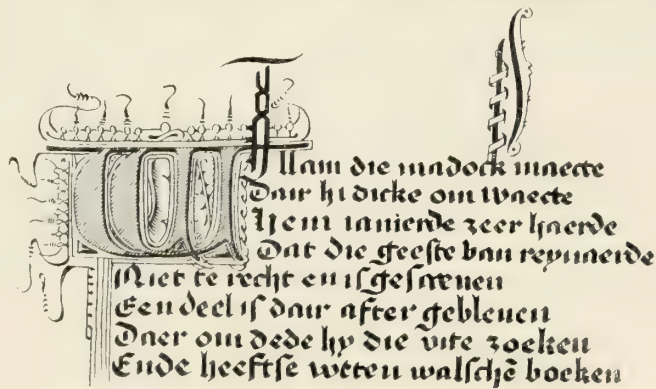 Willam die madock maecte
Dair hi dicke om waecte
Hem iamerde zeer haerde
Dat die geeste van reynaerde
Niet te recht en is gescreuen
Een deel is dair after gebleuen
Daer om dede hy die vite zoeken
Ende heeftse wten walschē boeken